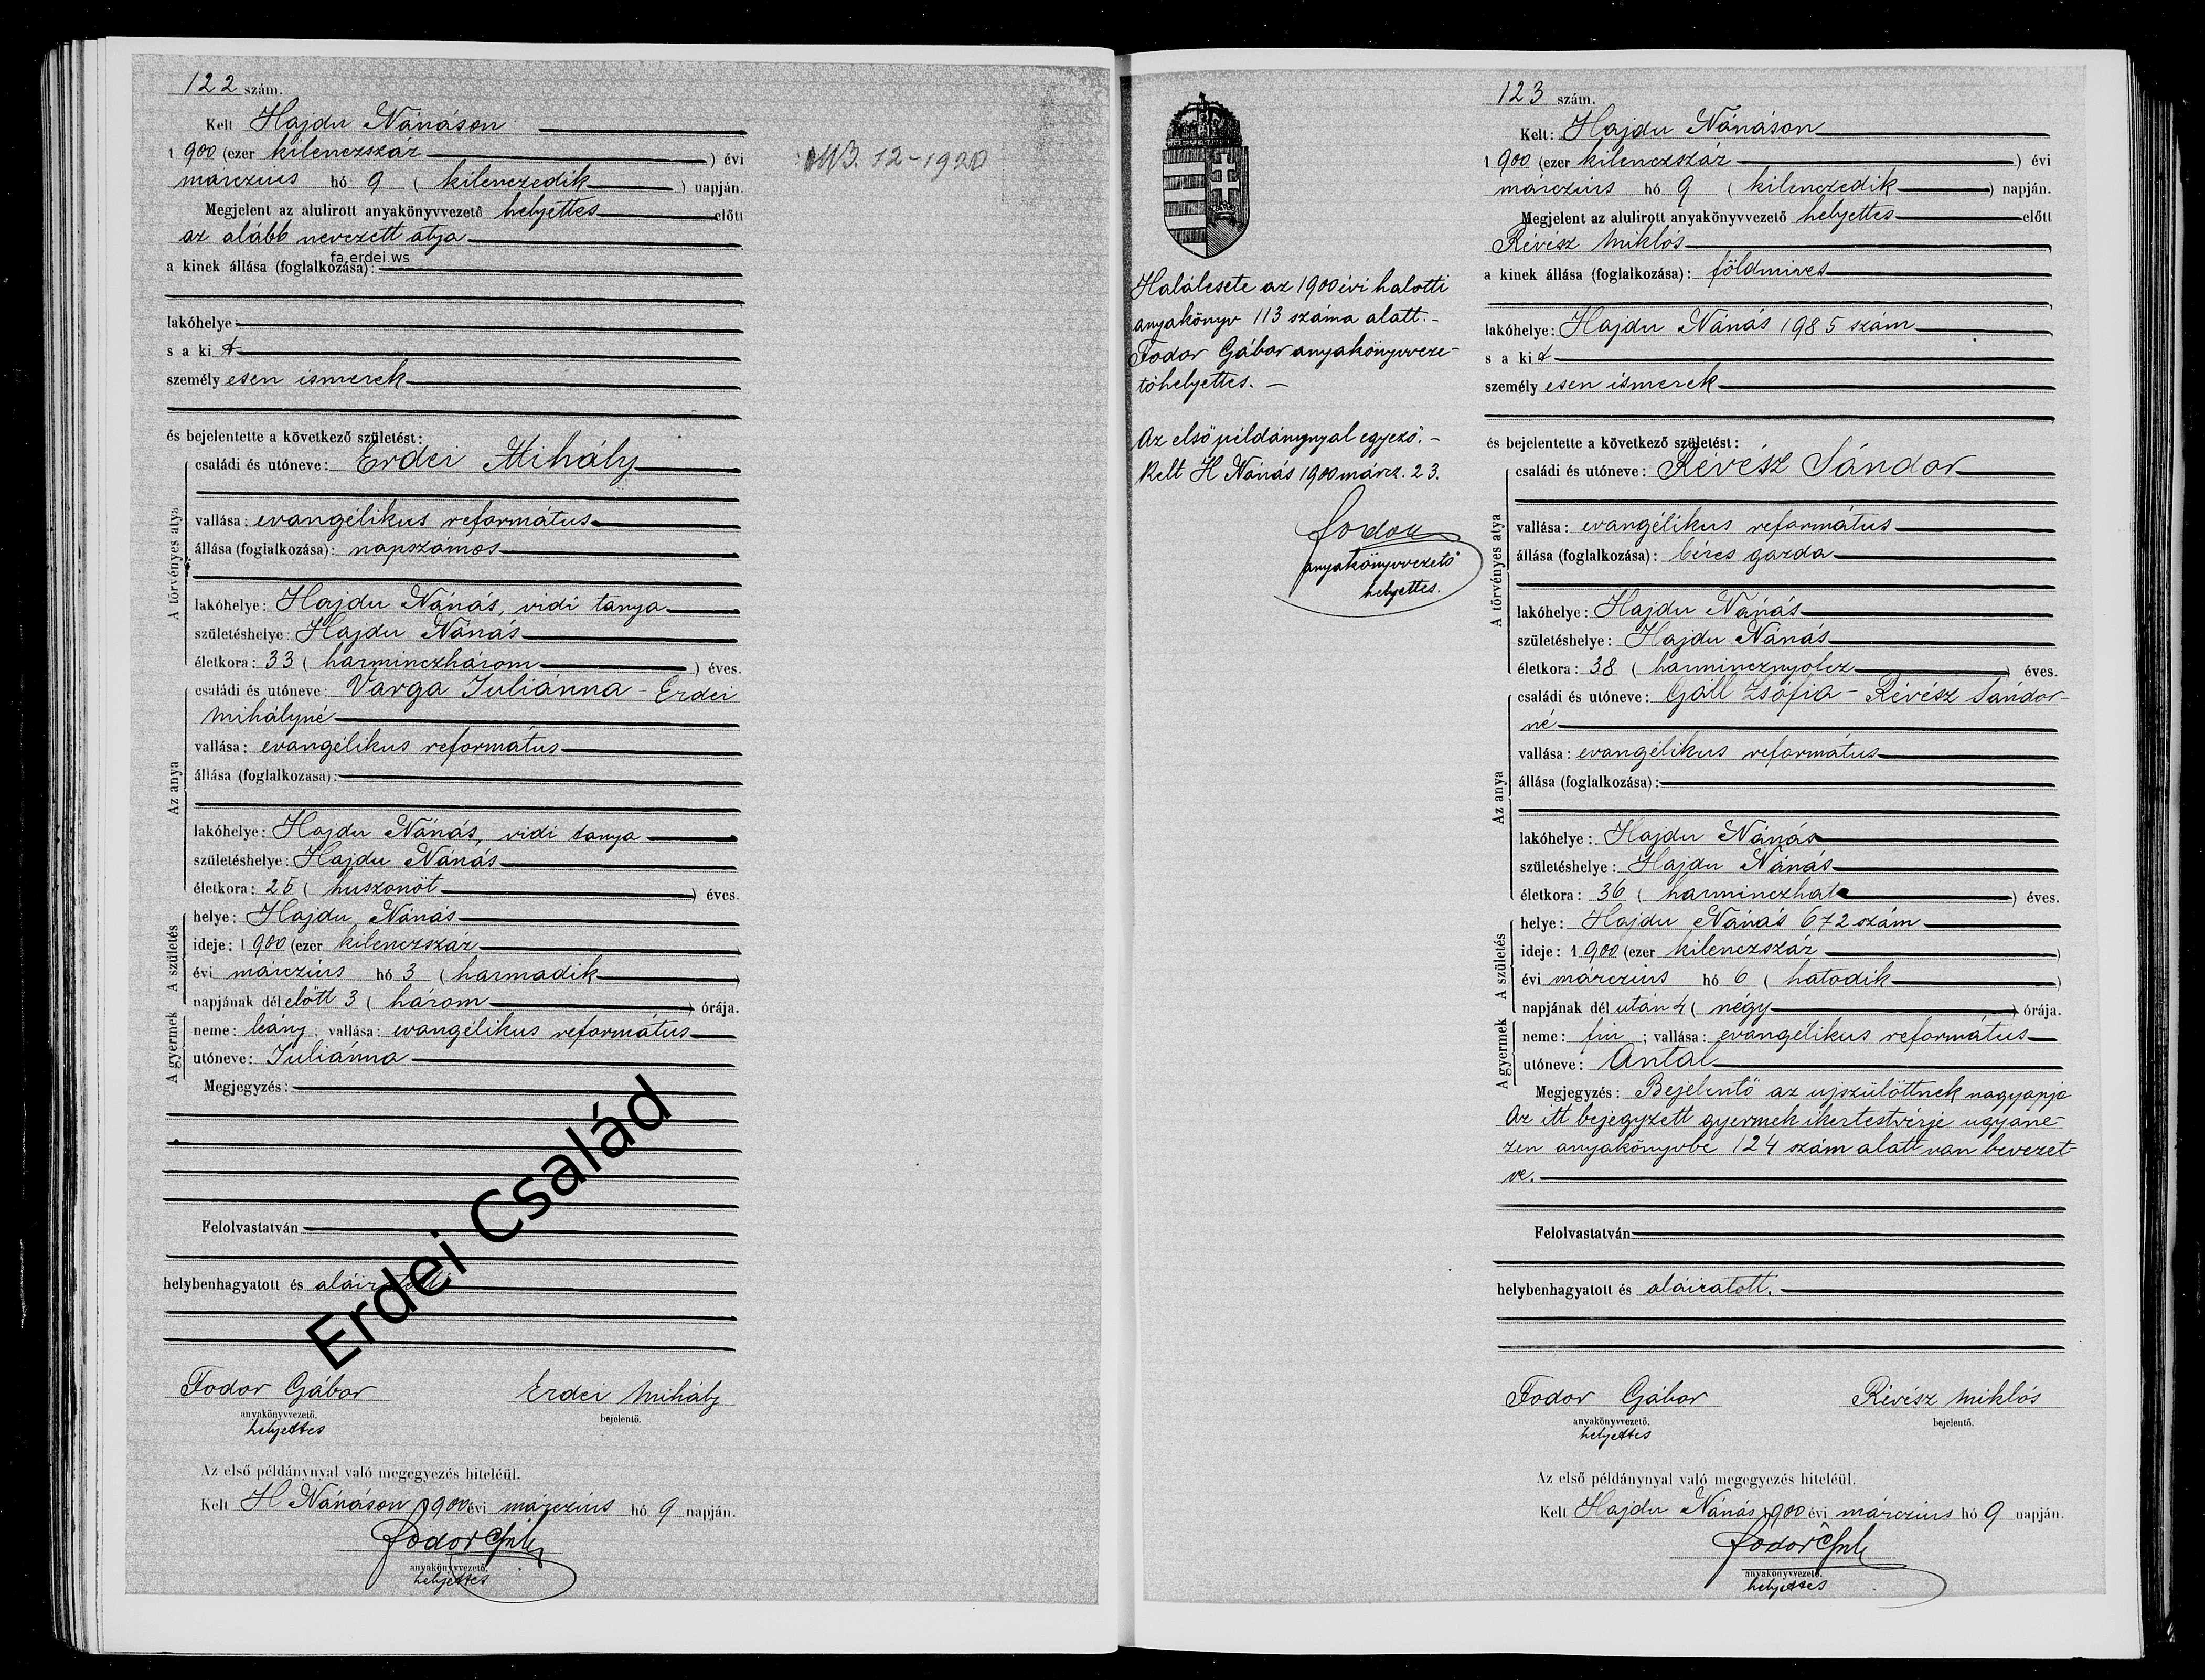 122 szám.
Kelt Hajdu Nánáson
1 900 (ezer kilenczszáz ) évi
márczius hó 9 ( kilenczedik ) napján.
Megjelent az alulirott anyakönyvvezető helyettes előtt
az alább nevezett atya
fa.erdei.ws
a kinek állása (foglalkozása):
lakóhelye:
s a ki t
személy esen ismerek
és bejelentette a következő születést:
A törvényes atya
családi és utóneve: Erdei Mihály
vallása: evangélikus református
állása (foglalkozása): napszámos
lakóhelye: Hajdu Nánás, vidi tanya
születéshelye: Hajdu Nánás
életkora: 33 ( harminczhárom ) éves.
Az anya
családi és utóneve: Varga Juliánna - Erdei
Mihályné
vallása: evangélikus református
állása (foglalkozása):
lakóhelye: Hajdu Nánás, vidi tanya
születéshelye: Hajdu Nánás
életkora: 25 ( huszonöt ) éves.
A születés
helye: Hajdu Nánás
ideje: 1 900 (ezer kilenczszáz
évi márczius hó 3 ( harmadik )
napjának dél előtt 3 ( három ) órája.
A gyermek
neme: leány ; vallása: evangélikus református
utóneve: Juliánna
Megjegyzés:
Erdei Család
Felolvastatván
helybenhagyatott és aláiratott.
Fodor Gábor Erdei Mihály
anyakönyvvezető. bejelentő.
helyettes
Az első példánynyal való megegyezés hiteléül.
Kelt H Nánáson 1900 évi márczius hó 9 napján.
Fodor
anyakönyvvezető.
helyettes
12-1920
Halálesete az 1900 évi halotti
anyakönyv 113 száma alatt. -
Fodor Gábor anyakönyvveze-
tőhelyettes. -
Az első példánynyal egyező. -
Kelt H Nánás 1900 márcz. 23.
Fodor
anyakönyvvezető
helyettes.
123 szám.
Kelt: Hajdu Nánáson
1 900 (ezer kilenczszáz ) évi
márczius hó 9 ( kilenczedik ) napján.
Megjelent az alulirott anyakönyvvezető helyettes előtt
Révész Miklós
a kinek állása (foglalkozása): földmives
lakóhelye: Hajdu Nánás 1985 szám
s a ki t
személy esen ismerek
és bejelentette a következő születést:
A törvényes atya
családi és utóneve: Révész Sándor
vallása: evangélikus református
állása (foglalkozása): béres gazda
lakóhelye: Hajdu Nánás
születéshelye: Hajdu Nánás
életkora: 38 ( harmincznyolcz ) éves.
Az anya
családi és utóneve: Gáll Zsófia - Révész Sándor-
né
vallása: evangélikus református
állása (foglalkozása):
lakóhelye: Hajdu Nánás
születéshelye: Hajdu Nánás
életkora: 36 ( harminczhat ) éves.
A születés
helye: Hajdu Nánás 672 szám
ideje: 1 900 (ezer kilenczszáz )
évi márczius hó 6 ( hatodik )
napjának dél után 4 ( négy ) órája.
A gyermek
neme: fiu ; vallása: evangélikus református
utóneve: Antal
Megjegyzés: Bejelentő az ujszülöttnek nagyapja
Az itt bejegyzett gyermek ikertestvérje ugyane-
zen anyakönyvbe 124 szám alatt van bevezet-
ve.
Felolvastatván
helybenhagyatott és aláiratott.
Fodor Gábor Révész Miklós
anyakönyvvezető. bejelentő.
helyettes
Az első példánynyal való megegyezés hiteléül.
Kelt Hajdu Nánás 1900 évi márczius hó 9 napján.
Fodor
anyakönyvvezető.
helyettes